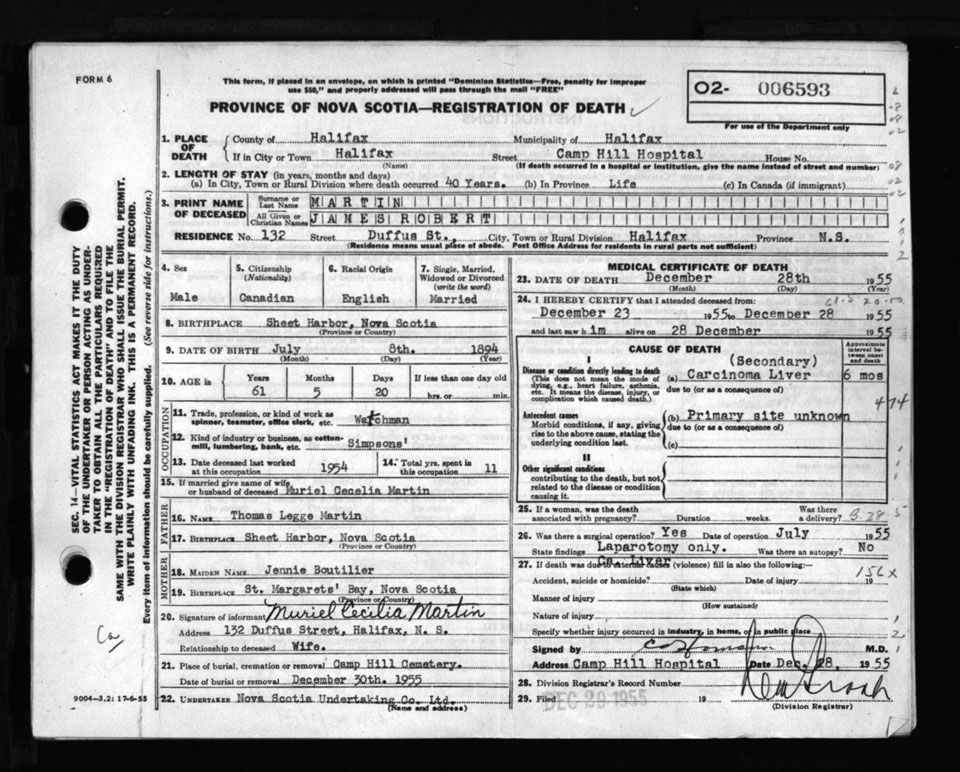 FORM 6
This form, if placed in an envelope, on which is printed "Dominion Statistics—Free, penalty for improper
use $50," and properly addressed will pass through the mail "FREE"
PROVINCE OF NOVA SCOTIA—REGISTRATION OF DEATH
02- 006593
For use of the Department only
1. PLACE OF DEATH
County of Halifax Municipality of Halifax
If in City or Town Halifax Street Camp Hill Hospital House No.
(Name) (If death occurred in a hospital or institution, give the name instead of street and number)
2. LENGTH OF STAY (in years, months and days)
(a) In City, Town or Rural Division where death occurred 40 Years. (b) In Province Life (c) In Canada (if immigrant)
3. PRINT NAME OF DECEASED
Surname or Last Name MARTIN
All Given or Christian Names JAMES ROBERT
RESIDENCE No. 132 Street Duffus St., City, Town or Rural Division Halifax Province N.S.
(Residence means usual place of abode. Post Office Address for residents in rural parts not sufficient)
4. Sex
Male
5. Citizenship
(Nationality)
Canadian
6. Racial Origin
English
7. Single, Married,
Widowed or Divorced
(write the word)
Married
8. BIRTHPLACE Sheet Harbor, Nova Scotia
(Province or Country)
9. DATE OF BIRTH July 8th. 1894
(Month) (Day) (Year)
10. AGE is
Years Months Days If less than one day old
61 5 20 hrs. or min.
OCCUPATION
11. Trade, profession, or kind of work as
spinner, teamster, office clerk, etc. Watchman
12. Kind of industry or business, as cotton-
mill, lumbering, bank, etc. Simpsons'
13. Date deceased last worked
at this occupation 1954
14. Total yrs. spent in
this occupation 11
15. If married give name of wife
or husband of deceased Muriel Cecelia Martin
FATHER
16. NAME Thomas Legge Martin
17. BIRTHPLACE Sheet Harbor, Nova Scotia
(Province or Country)
MOTHER
18. MAIDEN NAME Jennie Boutilier
19. BIRTHPLACE St. Margarets' Bay, Nova Scotia
(Province or Country)
20. Signature of informant Muriel Cecilia Martin
Address 132 Duffus Street, Halifax, N. S.
Relationship to deceased Wife.
21. Place of burial, cremation or removal Camp Hill Cemetery.
Date of burial or removal December 30th. 1955
22. UNDERTAKER Nova Scotia Undertaking Co. Ltd.
(Name and address)
MEDICAL CERTIFICATE OF DEATH
23. DATE OF DEATH December 28th 1955
(Month) (Day) (Year)
24. I HEREBY CERTIFY that I attended deceased from:
December 23 1955 to December 28 1955
and last saw him alive on 28 December 1955
CAUSE OF DEATH
Approximate interval between onset and death
I
Disease or condition directly leading to death
(This does not mean the mode of
dying, e.g., heart failure, asthenia,
etc. It means the disease, injury, or
complication which caused death.)
(Secondary)
(a) Carcinoma Liver 6 mos
due to (or as a consequence of)
Antecedent causes
Morbid conditions, if any, giving
rise to the above cause, stating the
underlying condition last.
(b) Primary site unknown
due to (or as a consequence of)
(c)
II
Other significant conditions
contributing to the death, but not
related to the disease or condition
causing it.
25. If a woman, was the death
associated with pregnancy? Duration weeks. Was there
a delivery?
26. Was there surgical operation? Yes Date of operation July 1955
State findings Laparotomy only. Was there an autopsy? No
Ca. Liver
27. If death was due to external causes (violence) fill in also the following:
Accident, suicide or homicide? Date of injury 19
(State which)
156x
Manner of injury
(How sustained)
Nature of injury
Specify whether injury occurred in industry, in home, or in public place
Signed by M.D.
Address Camp Hill Hospital Date Dec. 28. 1955
28. Division Registrar's Record Number
29. Filed DEC 29 1955 19
(Division Registrar)
SEC. 14—VITAL STATISTICS ACT MAKES IT THE DUTY
OF THE UNDERTAKER OR PERSON ACTING AS UNDER-
TAKER TO OBTAIN ALL THE PARTICULARS REQUIRED
IN THE "REGISTRATION OF DEATH" AND TO FILE THE
SAME WITH THE DIVISION REGISTRAR WHO SHALL ISSUE THE BURIAL PERMIT.
WRITE PLAINLY WITH UNFADING INK. THIS IS A PERMANENT RECORD.
Every item of information should be carefully supplied. (See reverse side for instructions.)
Ca
9004—3.2: 17-6-55